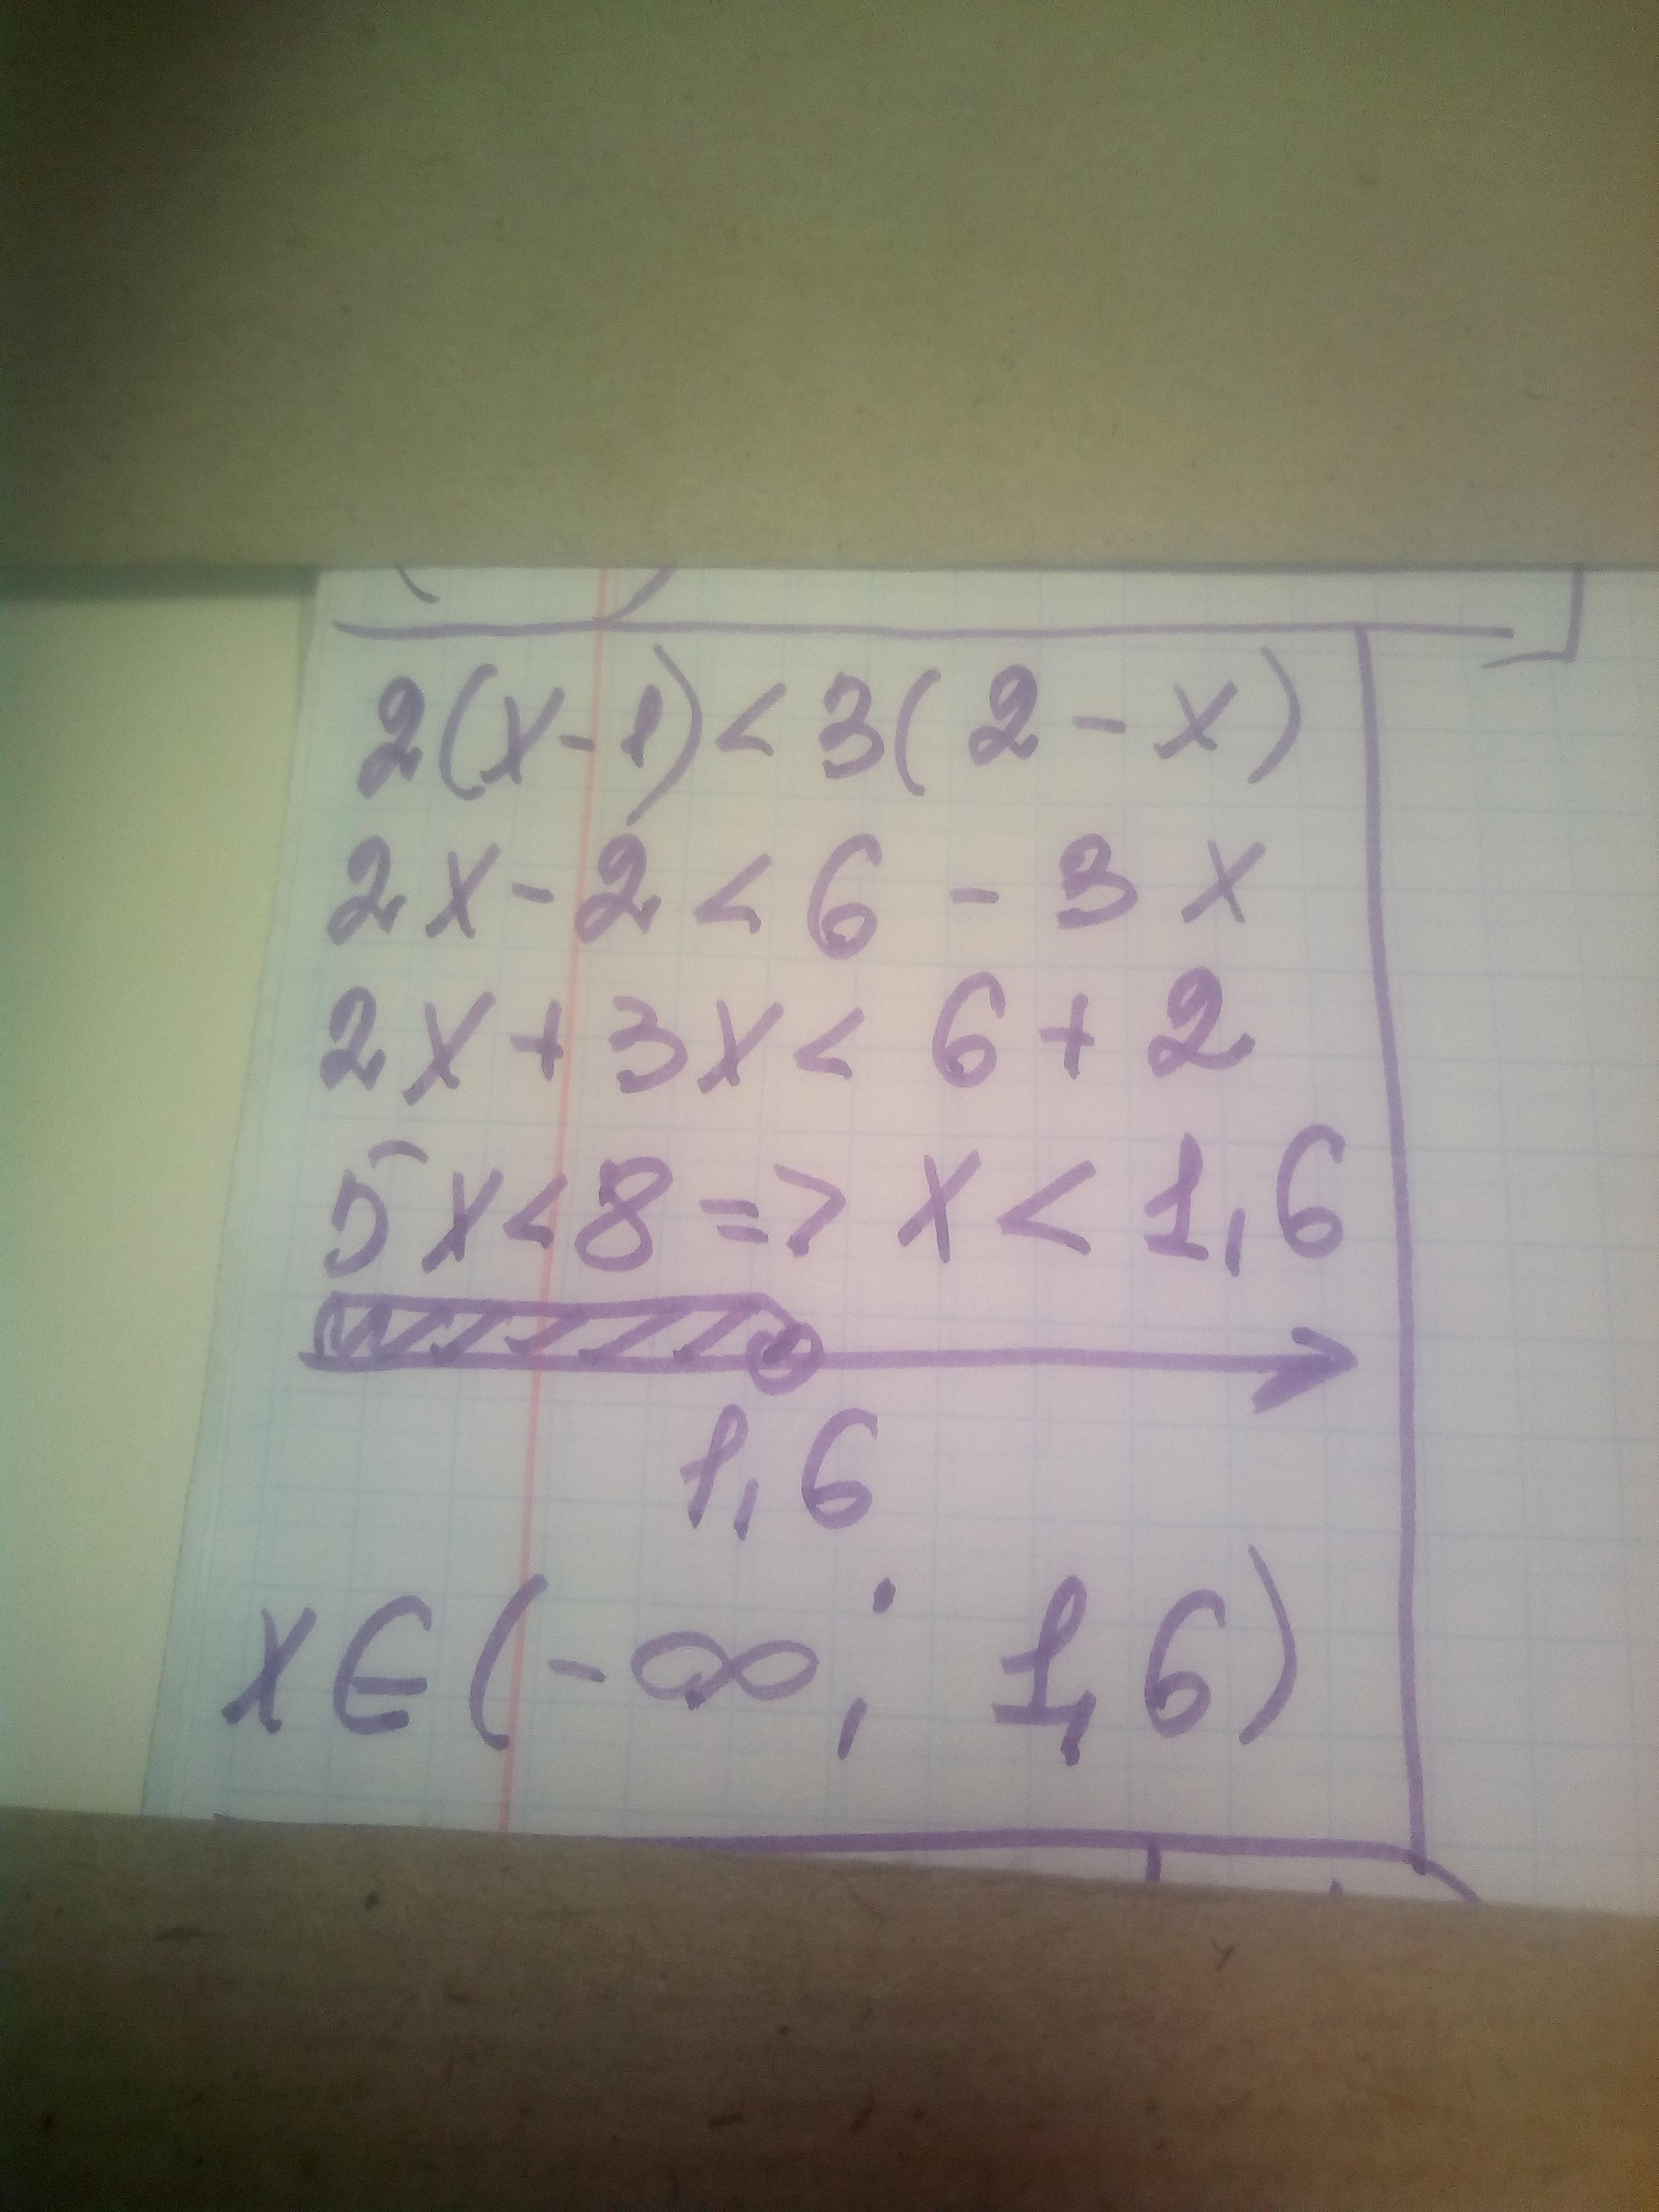 2(x-1)<3(2-x)
2x-2<6-3x
2x+3x<6+2
5x<8=>x<1,6
1,6
x∈(-∞; 1,6)